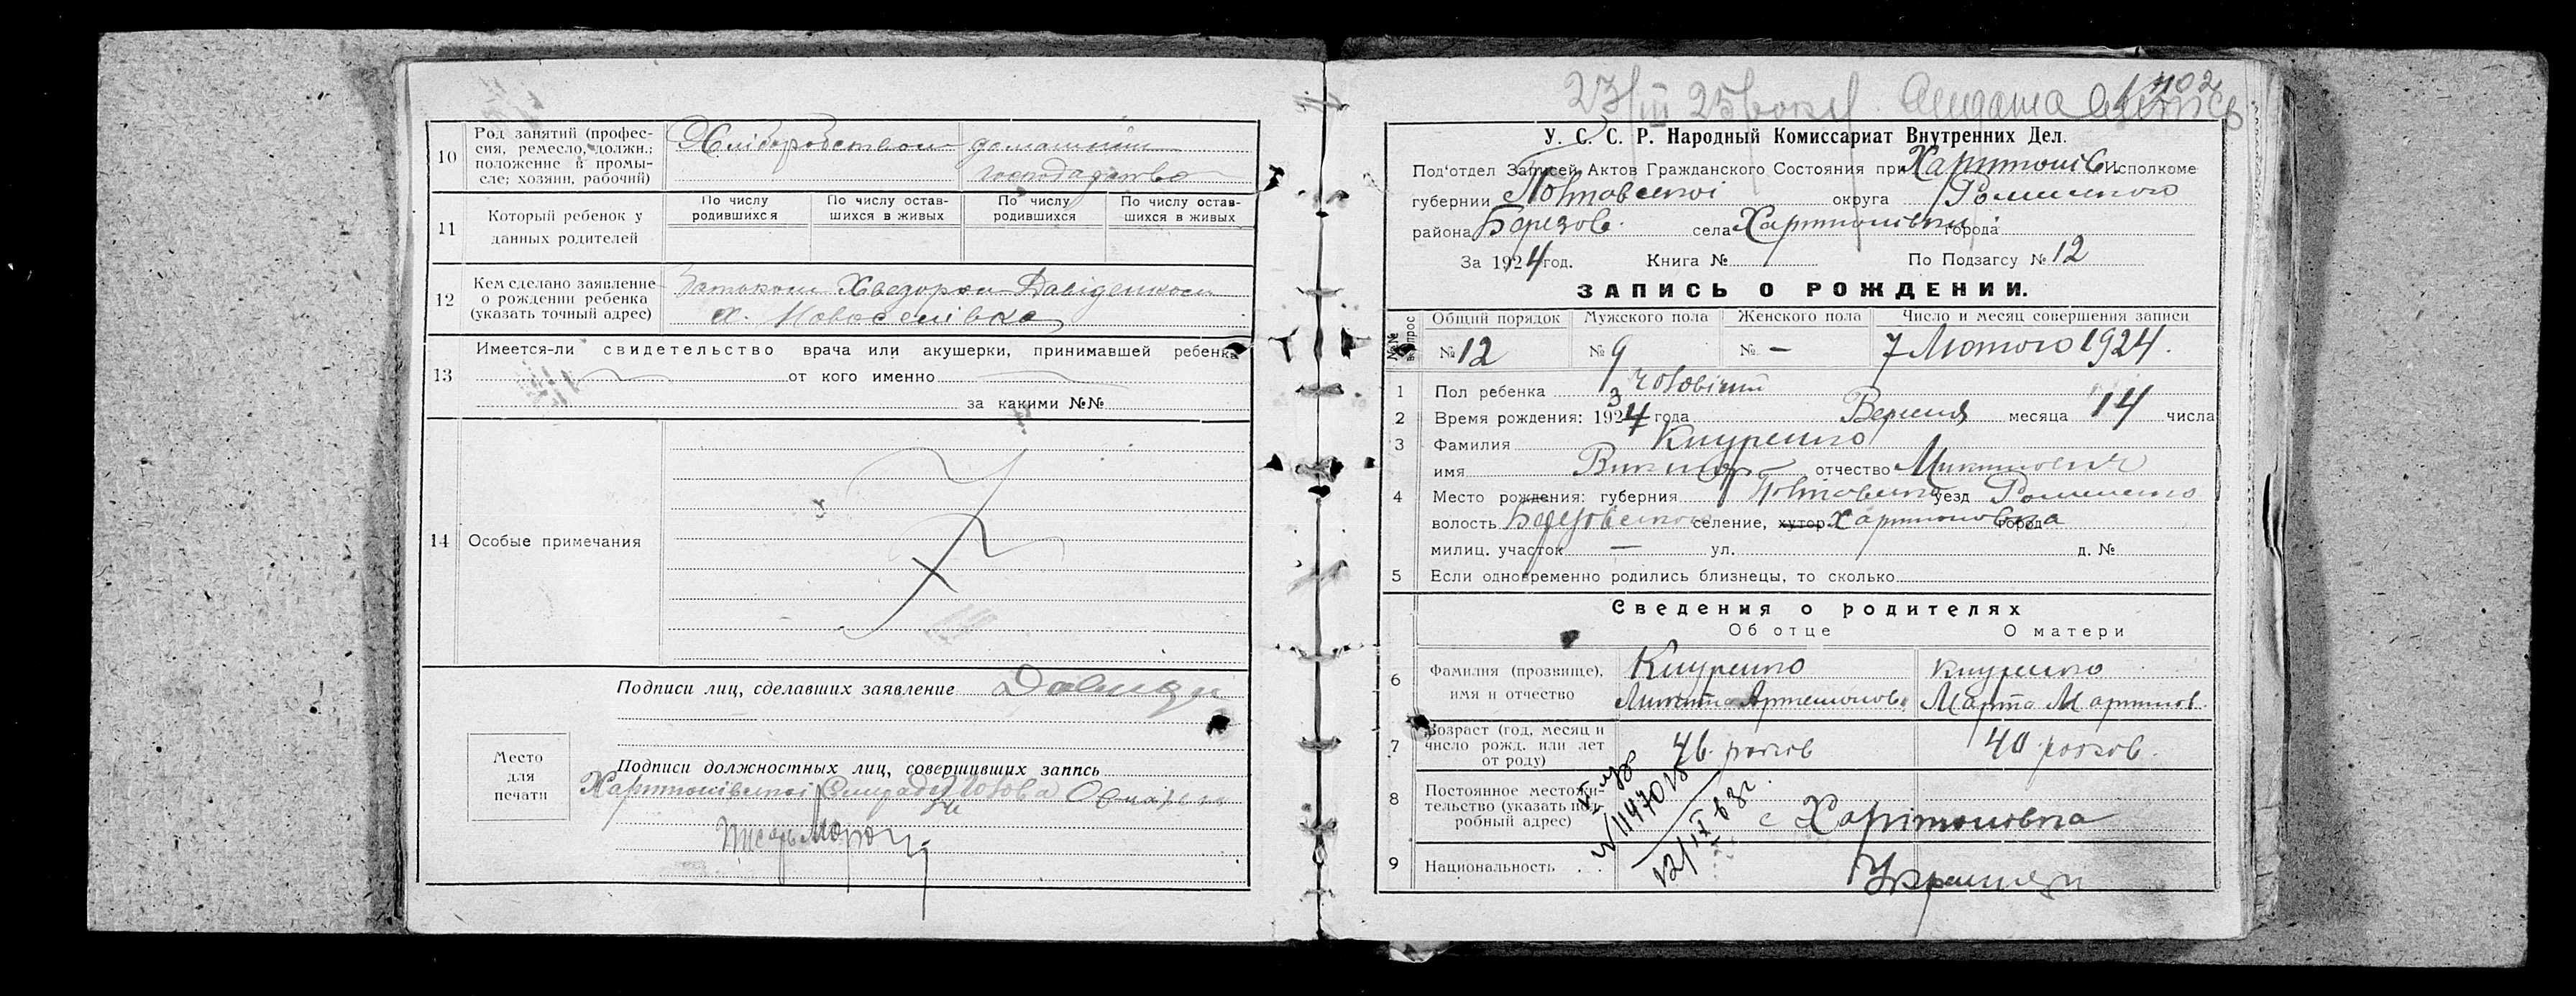 10 Род занятий (профес-
сия, ремесло, должн.;
положение в промы-
сле; хозяин, рабочий)
Хліборобством домашним
господарство
11 Который ребенок у
данных родителей
По числу
родившихся
По числу остав-
шихся в живых
По числу
родившихся
По числу остав-
шихся в живых
12 Кем сделано заявление
о рождении ребенка
(указать точный адрес)
Хведором Давіденком
х. Новоселівка
13 Имеется-ли свидетельство врача или акушерки, принимавшей ребенка
от кого именно
за какими №№
14 Особые примечания
Подписи лиц, сделавших заявление
Место
для
печати
Подписи должностных лиц, совершивших запись
Харитонівської Сільради Голова
23/III 25
402
У. С. С. Р. Народный Комиссариат Внутренних Дел.
Под'отдел Записей Актов Гражданского Состояния при Харитонів. Исполкоме
губернии Полтавської округа Роменского
района Березов. села Харитонівки города
За 1924 год. Книга № По Подзагсу № 12
ЗАПИСЬ О РОЖДЕНИИ.
№№ вопрос
Общий порядок Мужского пола Женского пола Число и месяц совершения записи
№ 12 № 9 № — 7 Лютого 1924.
1 Пол ребенка чоловічий
3
2 Время рождения: 1924 года Вересня месяца 14 числа
3 Фамилия Кнуренко
имя Виктор отчество Микитович
4 Место рождения: губерния Полтавська уезд Роменського
волость Березовською селение, хутор Харитоновка город
милиц. участок — ул. д. №
5 Если одновременно родились близнецы, то сколько
Сведения о родителях
Об отце О матери
6 Фамилия (прозвище),
имя и отчество
Кнуренко
Микита Артемонов.
Кнуренко
Марта Мартинов.
7 Возраст (год, месяц и
число рожд. или лет
от роду)
46 років
40 років.
8 Постоянное местожи-
тельство (указать под-
робный адрес)
с Харітоновка
9 Национальность . .
Українци